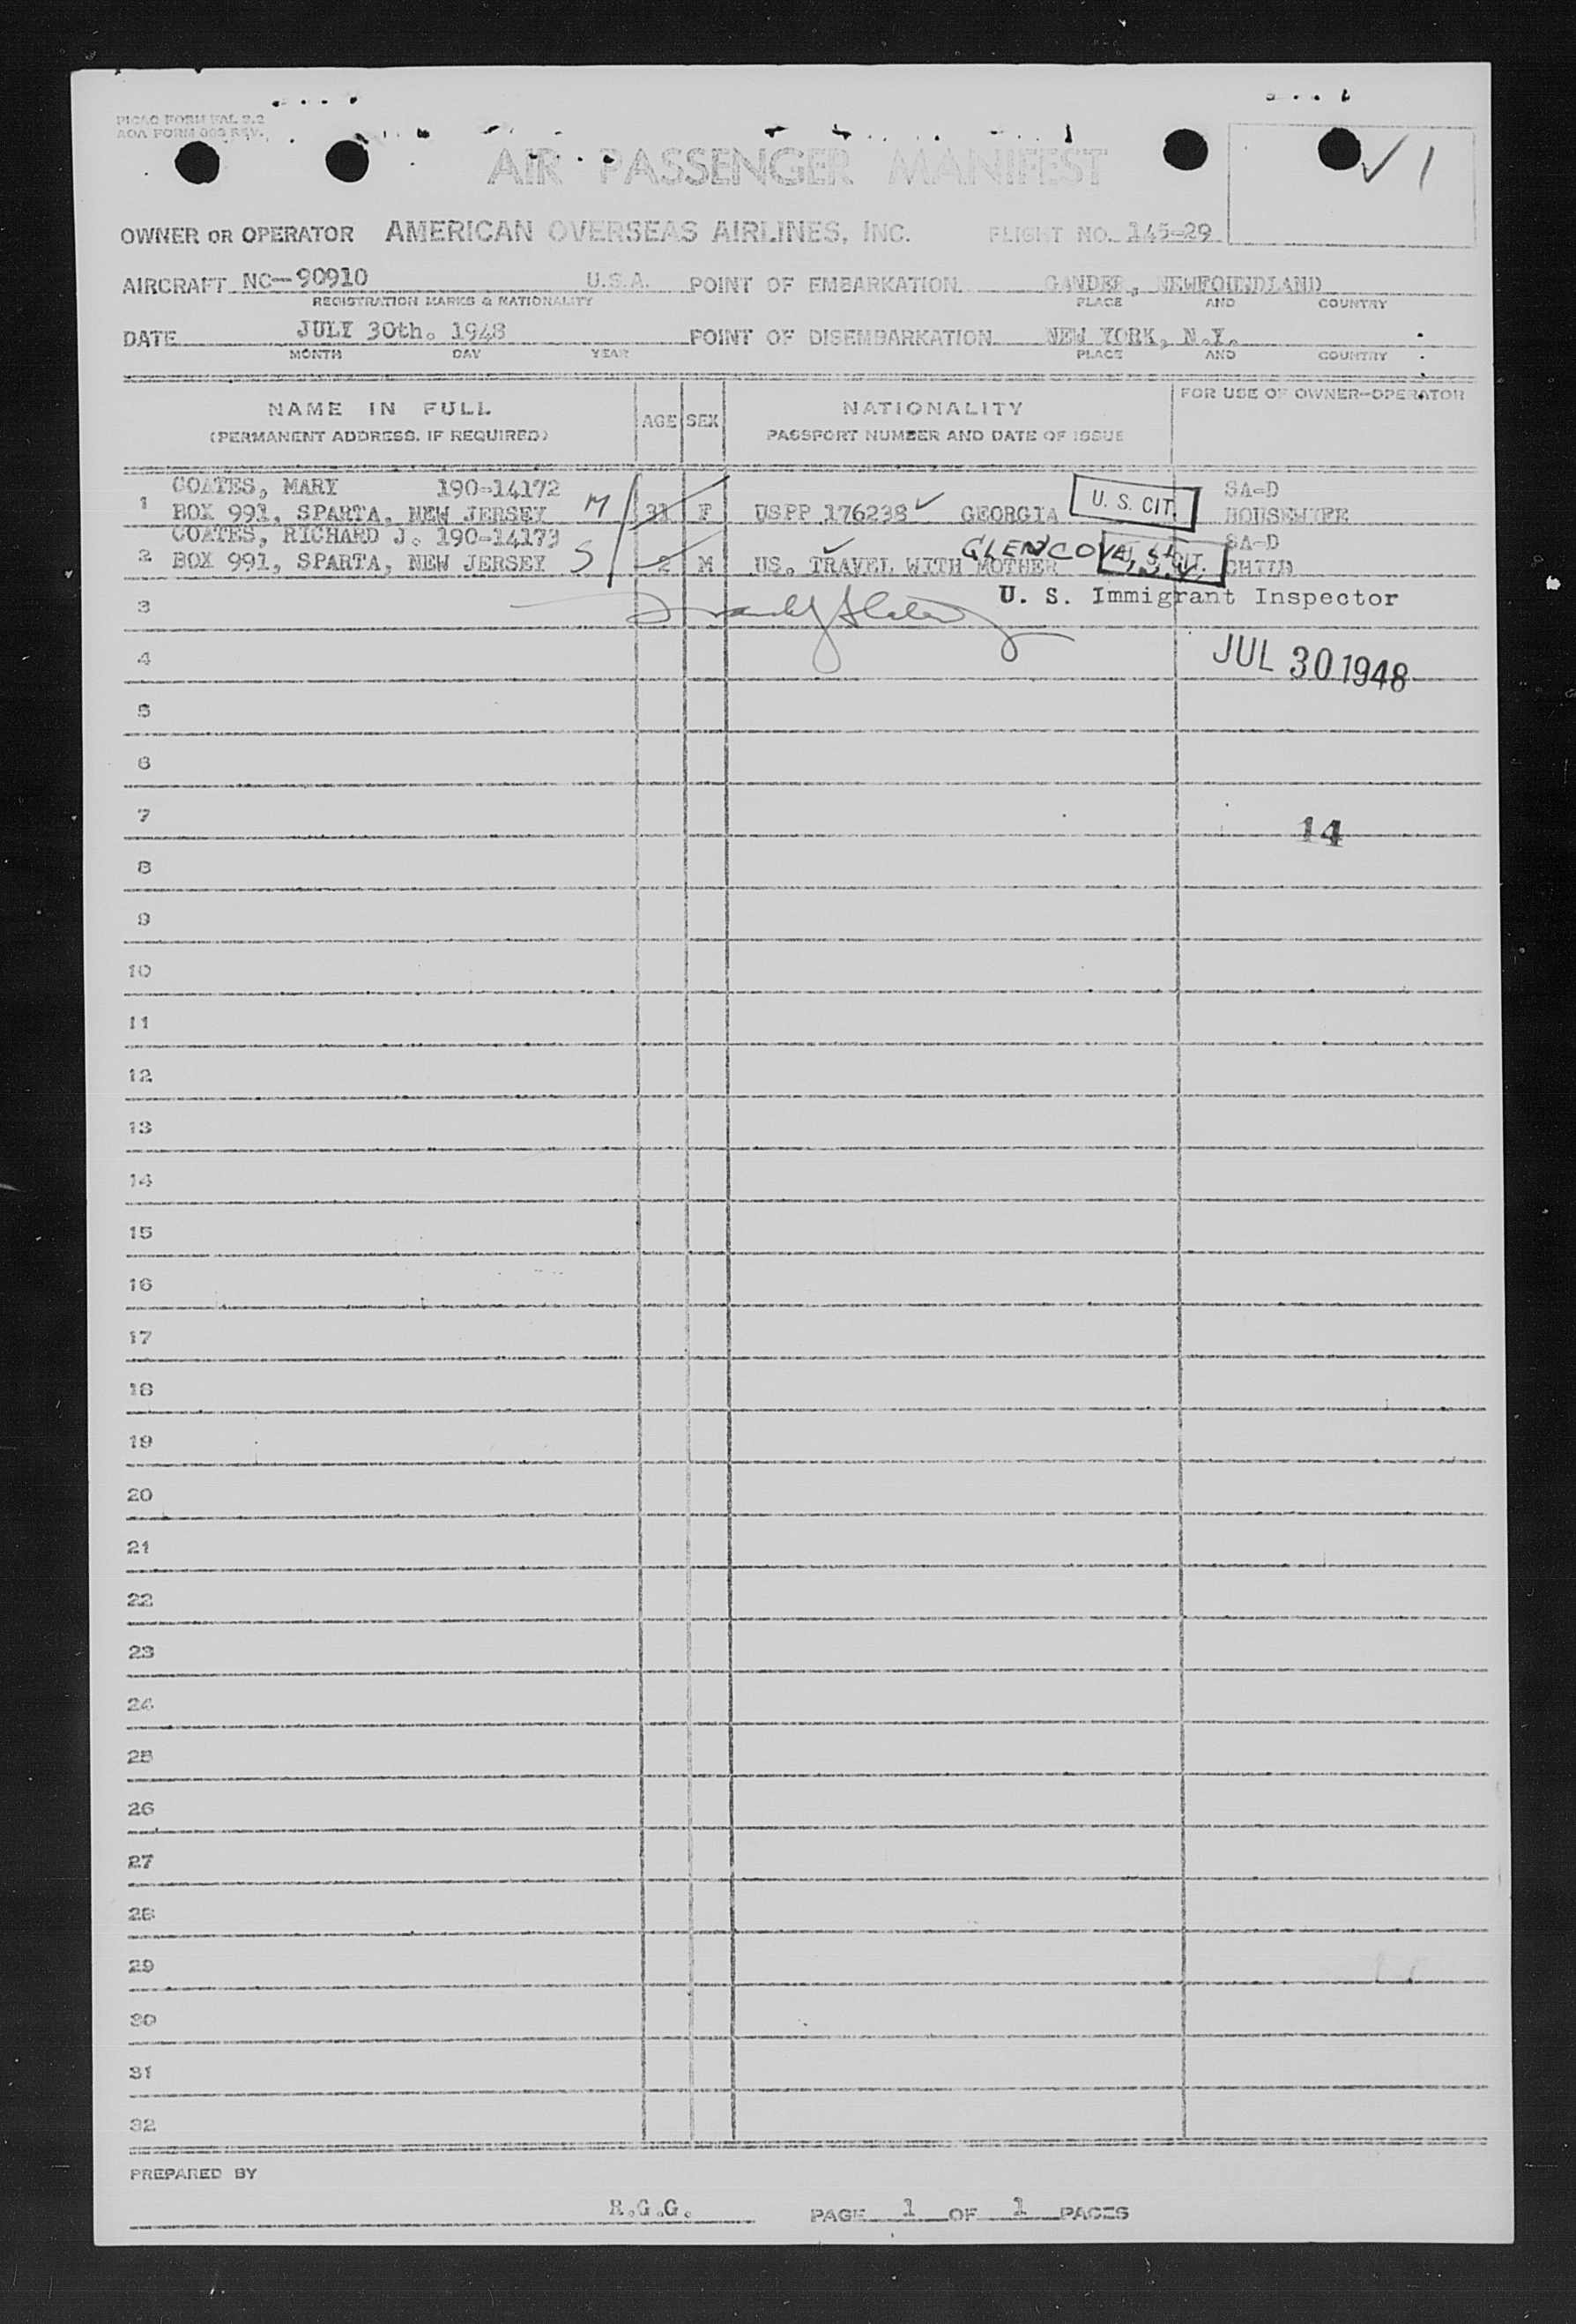 PICAO FORM FAL 2.2
AOA FORM REV.
✓ 1
AIR PASSENGER MANIFEST
OWNER OR OPERATOR AMERICAN OVERSEAS AIRLINES, INC. FLIGHT NO. 145-29
AIRCRAFT NC-90910 U.S.A. POINT OF EMBARKATION GANDER, NEWFOUNDLAND
REGISTRATION MARKS & NATIONALITY PLACE AND COUNTRY
DATE JULY 30th. 1948 POINT OF DISEMBARKATION NEW YORK, N.Y.
MONTH DAY YEAR PLACE AND COUNTRY
NAME IN FULL AGE SEX NATIONALITY FOR USE OF OWNER-OPERATOR
(PERMANENT ADDRESS, IF REQUIRED) PASSPORT NUMBER AND DATE OF ISSUE
COATES, MARY 190-14172 SA-D
1 BOX 991, SPARTA, NEW JERSEY M 31 F USPP 176238 ✓ GEORGIA U. S. CIT. HOUSEWIFE
COATES, RICHARD J. 190-14173 GLENCOVE, SA-D
2 BOX 991, SPARTA, NEW JERSEY S 2 M US. TRAVEL WITH MOTHER U. S. CIT. CHILD
3 U. S. Immigrant Inspector
4 JUL 30 1948
5
6
7 14
8
9
10
11
12
13
14
15
16
17
18
19
20
21
22
23
24
25
26
27
28
29
30
31
32
PREPARED BY
R.G.G. PAGE 1 OF 1 PAGES